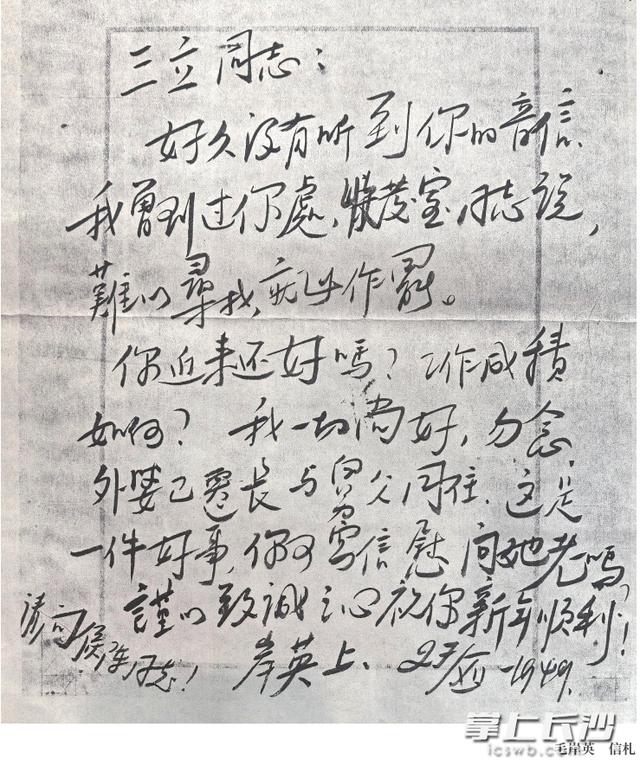 三立同志:
好久没有听到你的音信.
我曾到过你處,懐茂宝同志说,
難以尋找,就此作罷。
你近来还好嗎?工作成積
如何?我一切尚好,勿念.
外婆已遷長与舅父同住.这是
一件好事,你可写信慰问她老嗎?
謹以致誠之心祝你新年順利!
岸英上. 1949.
请问 同志!
掌上长沙
icswb.com
毛岸英 信札